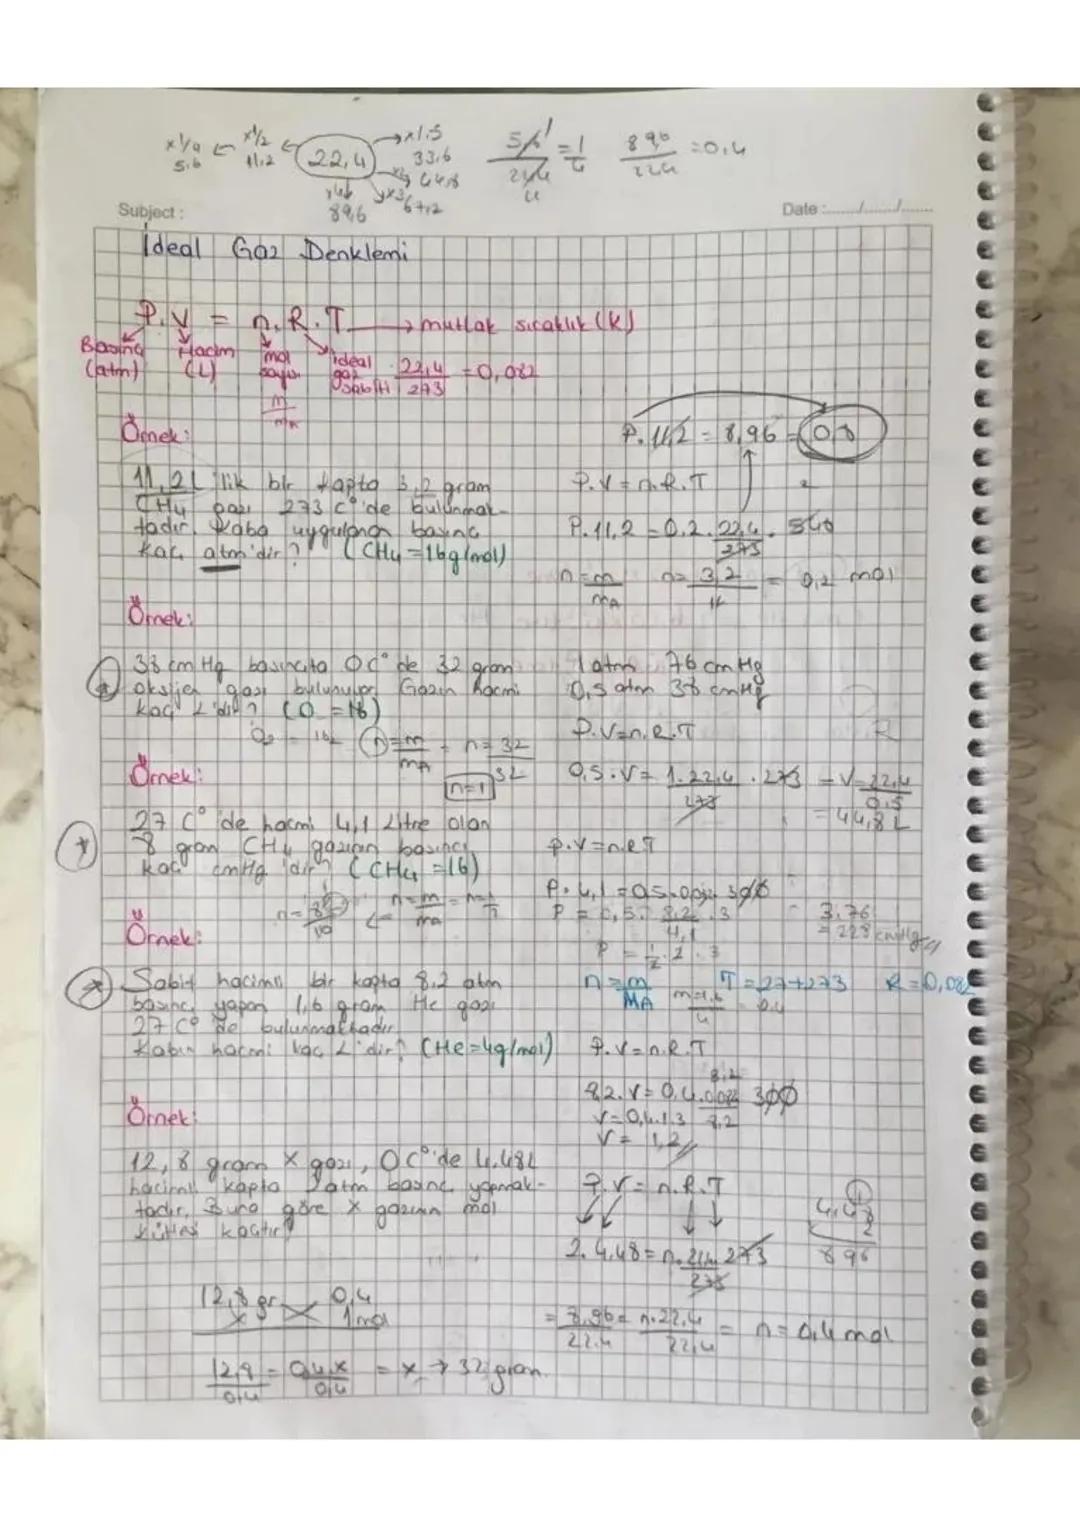 x1/4 ← x1/2 ← 22,4 → x1.5
5.6 11,2 33,6
x2 44,8
x4 x3 67,2
89,6
5,6 / 22,4 = 1/4
8 96 / 224 = 0,4
Subject :
Date :....../....../......
İdeal Gaz Denklemi
P.V = n.R.T → mutlak sıcaklık (K)
Basınç Hacim mol ideal 22,4 = 0,082
(atm) (L) sayısı gaz 273
sabiti
m
mA
Örnek:
P.11,2 = 8,96 = 0,8
11,2L'lik bir kapta 3,2 gram
CH4 gazı 273 C°'de bulunmak-
tadır. Kaba uygulanan basınç
kaç atm'dir? (CH4=16g/mol)
P.V = n.R.T
P.11,2 = 0.2. 22,4 . 546
273
n=m/mA n= 3,2/16 = 0,2 mol
Örnek:
38 cmHg basınçta 0C°'de 32 gram
oksijen gazı bulunuyor Gazın hacmi
kaç L'dir? (O =16)
1 atm 76 cmHg
0,5 atm 38 cmHg
P.V=n.R.T
n=m/mA n=32/32
n=1
0,5.V= 1.22,4 . 273 - V=22,4
273 0,5
= 44,8 L
Örnek:
27 C°'de hacmi 4,1 Litre olan
8 gram CH4 gazının basıncı
kaç cmHg'dir? (CH4=16)
P.V=n.R.T
P. 4,1 = 0,5.0,082.300
P = 0,5. 8,2 .3
4,1
P = 1/2 . 2 . 3
3.76
= 228 cmHg
Örnek:
Sabit hacimli bir kapta 8,2 atm
basınç yapan 1,6 gram He gazı
27 C°'de bulunmaktadır
Kabın hacmi kaç L'dir? (He=4g/mol)
n=m/MA T=27+273 R=0,082
m=1,6/4 = 0.4
P.V=n.R.T
8,2.V= 0,4.0,082 300
V=0,4.1.3 8,2
V= 1,2
Örnek:
12,8 gram X gazı, 0C°'de 4.48L
hacimli kapta 2atm basınç yapmak-
tadır. Buna göre X gazının mol
kütlesi kaçtır?
P.V= n.R.T
2. 4,48= n.22,4 273
273
4,48
2
8 96
12,8 gr 0,4
x 1mol
= 8,96 = n.22,4 = n= 0,4 mol
22.4 22,4
12,8 = 0,4.x = x → 32 gram.
0,4 0,4